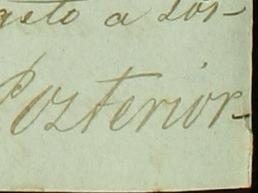 a Los-
Posterior-